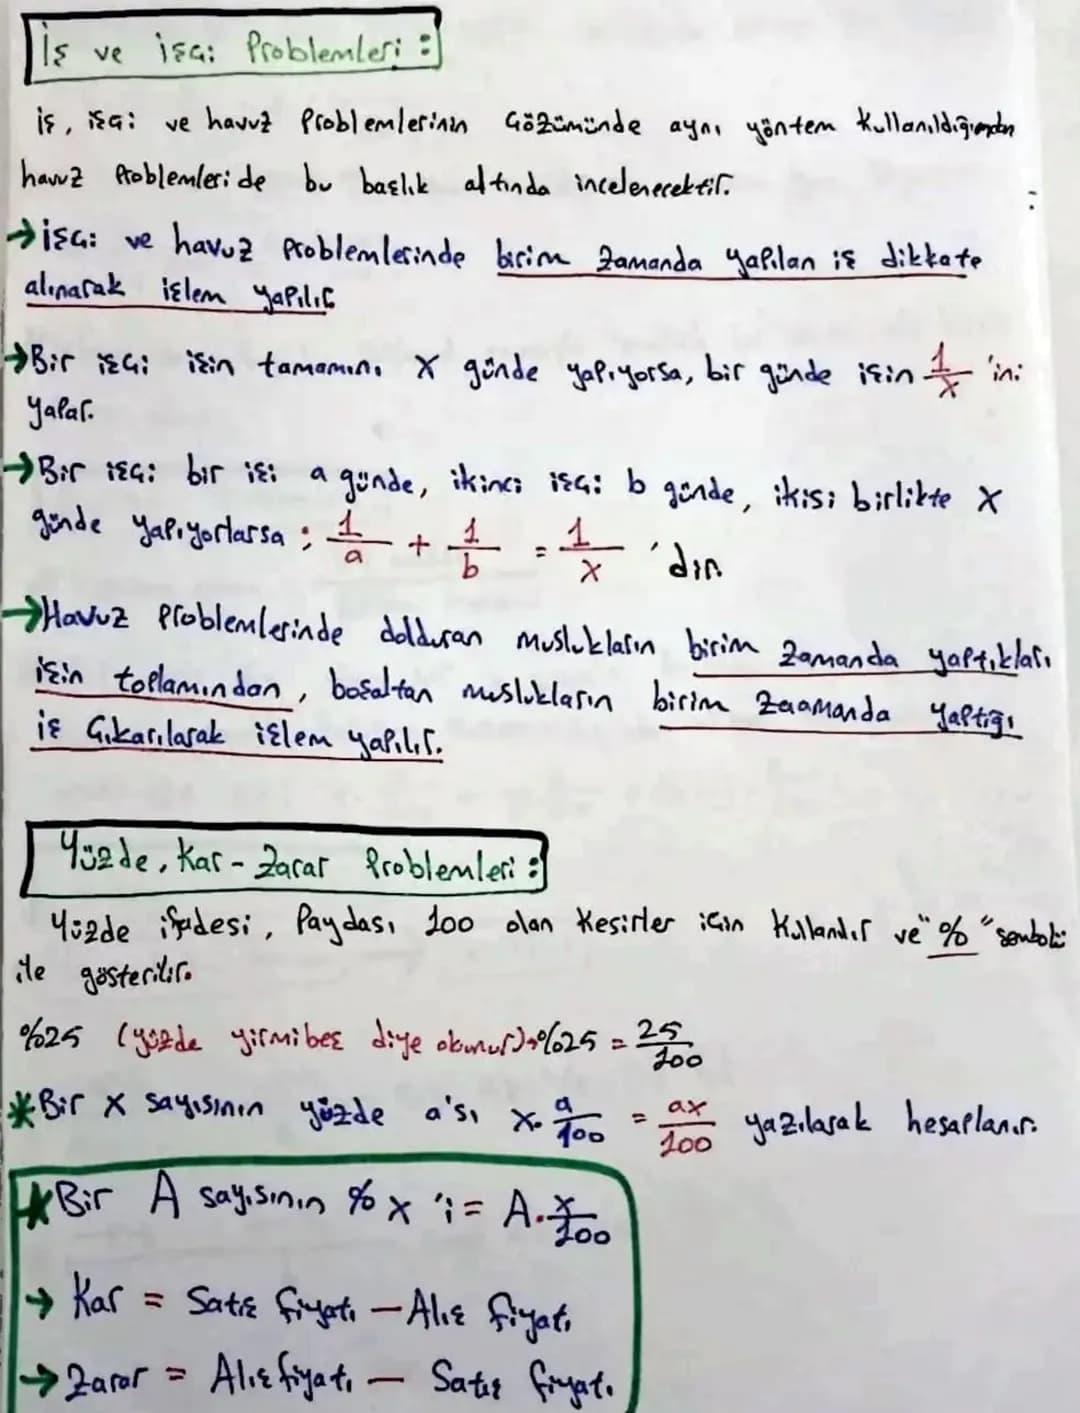 İş ve işçi Problemleri :
iş, işçi ve havuz Problemlerinin Çözümünde aynı yöntem kullanıldığından
havuz Problemleri de bu başlık altında incelenecektir.
→işçi ve havuz Problemlerinde birim zamanda yapılan iş dikkate
alınarak işlem yapılır
→Bir işçi işin tamamını x günde yapıyorsa, bir günde işin 1/x 'ini
yapar.
→Bir işçi bir işi a günde, ikinci işçi b günde, ikisi birlikte x
günde yapıyorlarsa ; 1/a + 1/b = 1/x 'dir.
→Havuz Problemlerinde dolduran muslukların birim zamanda yaptıkları
işin toplamından, boşaltan muslukların birim zaamanda yaptığı
iş çıkarılarak işlem yapılır.
Yüzde, Kar - Zarar Problemleri :
Yüzde ifadesi, Paydası 100 olan Kesirler için Kullanılır ve "%" sembolü
ile gösterilir.
%25 (yüzde yirmibeş diye okunur)→%25 = 25/100
*Bir x sayısının yüzde a'sı x. a/100 = ax/100 yazılarak hesaplanır.
*Bir A sayısının % x 'i = A. x/100
→ Kar = Satış fiyatı — Alış fiyatı
→ Zarar = Alış fiyatı — Satış fiyatı